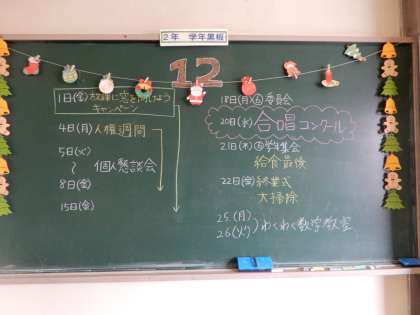 2年 学年黒板
12
1日(金)放課に窓を開けよう
キャンペーン
4日(月)人権週間
5日(火)
〜 個人懇談会
8日(金)
15日(金)
18日(月)⑤委員会
20日(水)合唱コンクール
21日(木)⑤学年集会
給食最後
22日(金)終業式
大掃除
25(月)
26(火) わくわく数学教室